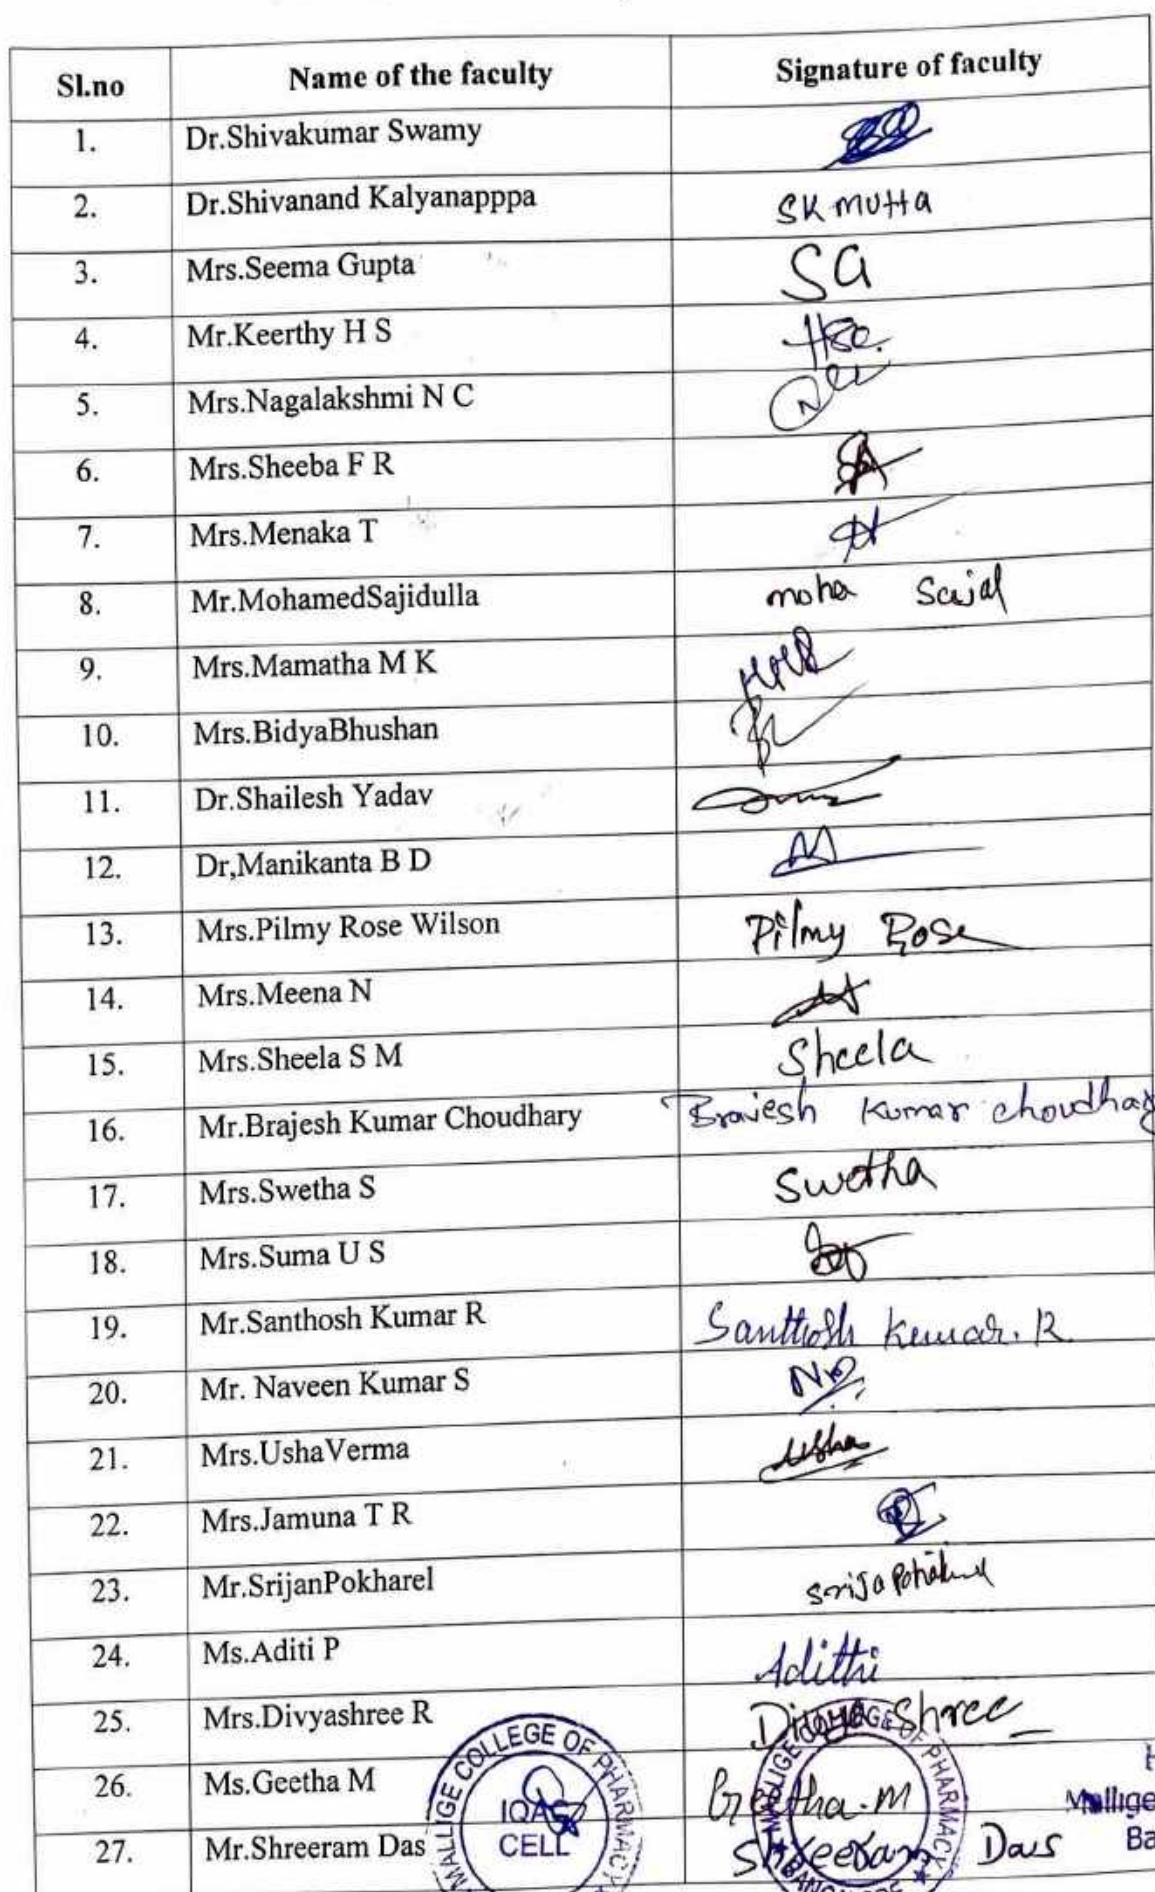 Sl.no Name of the faculty Signature of faculty
1. Dr.Shivakumar Swamy
2. Dr.Shivanand Kalyanapppa SK mutta
3. Mrs.Seema Gupta SG
4. Mr.Keerthy H S
5. Mrs.Nagalakshmi N C
6. Mrs.Sheeba F R
7. Mrs.Menaka T
8. Mr.MohamedSajidulla moha Sajid
9. Mrs.Mamatha M K
10. Mrs.BidyaBhushan
11. Dr.Shailesh Yadav
12. Dr,Manikanta B D
13. Mrs.Pilmy Rose Wilson Pilmy Rose
14. Mrs.Meena N
15. Mrs.Sheela S M Sheela
16. Mr.Brajesh Kumar Choudhary Brajesh Kumar choudhary
17. Mrs.Swetha S Swetha
18. Mrs.Suma U S
19. Mr.Santhosh Kumar R Santhosh Kumar. R
20. Mr. Naveen Kumar S
21. Mrs.UshaVerma Usha
22. Mrs.Jamuna T R
23. Mr.SrijanPokharel
24. Ms.Aditi P Adithi
25. Mrs.Divyashree R Divya Shree
26. Ms.Geetha M Geetha.M
27. Mr.Shreeram Das Shreeram Das
MALLIGE COLLEGE OF PHARMACY
IQAC
CELL
MALLIGE COLLEGE OF PHARMACY
BANGALORE
Mallige
Ba